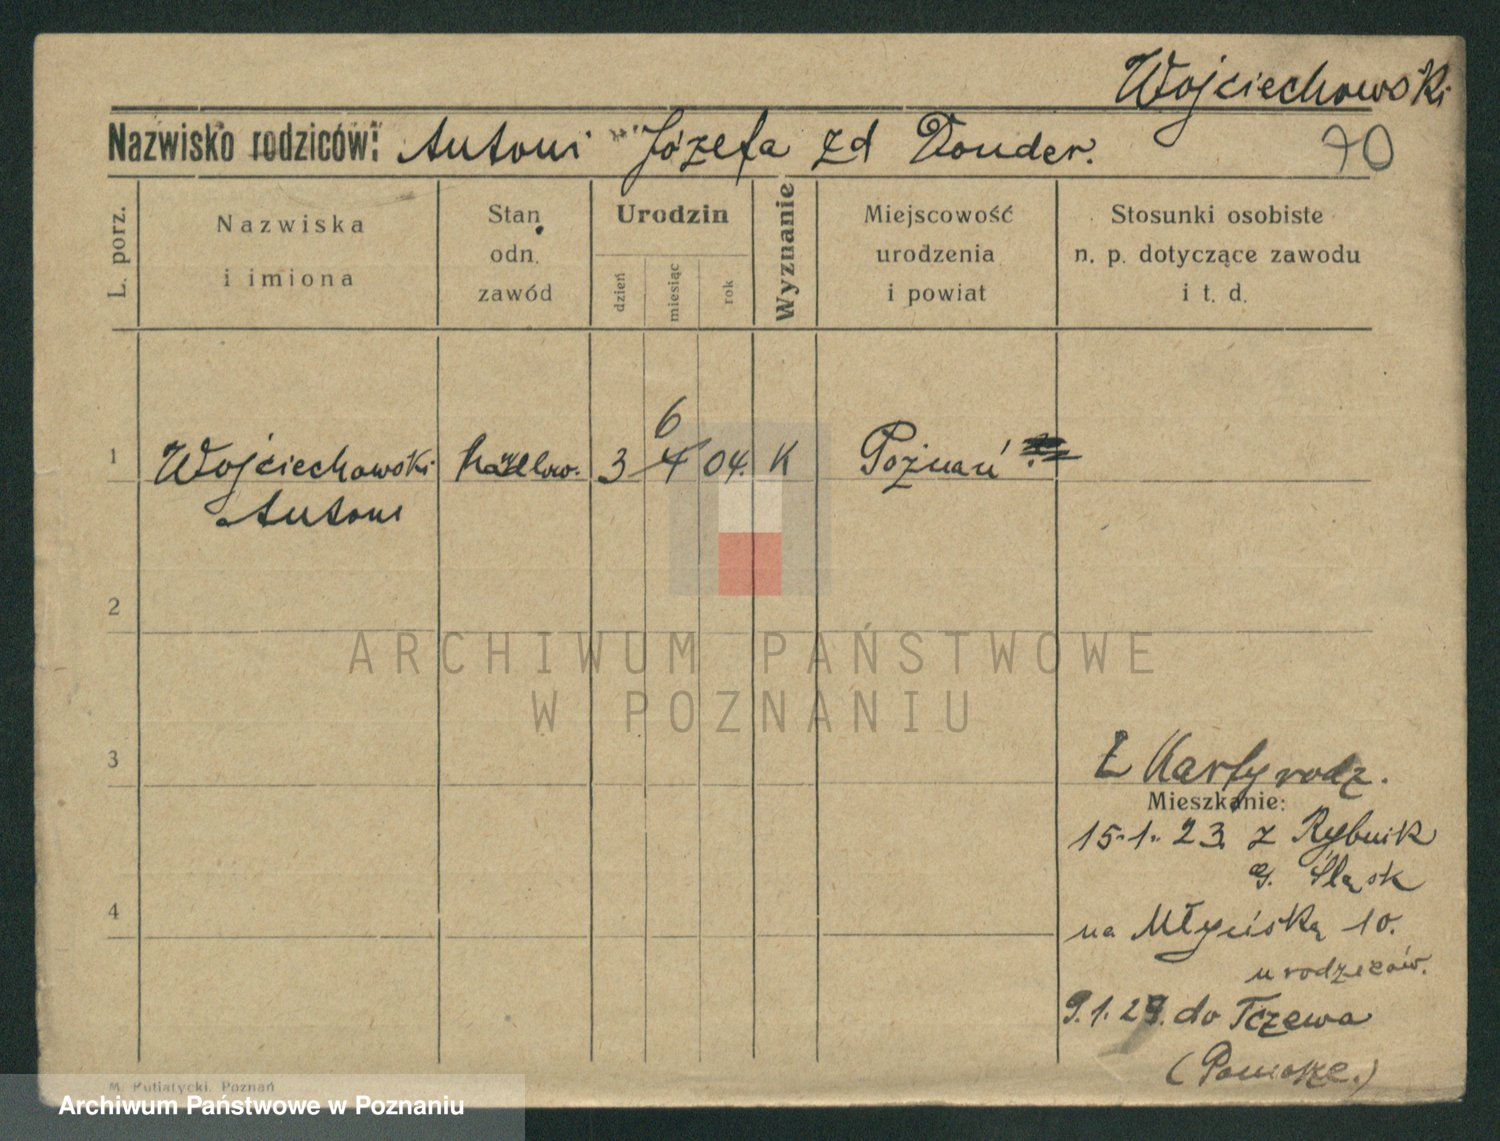 Wojciechowski
Nazwisko rodziców: Antoni Józefa zd Donder.
70
L. porz.
Nazwiska
i imiona
Stan
odn.
zawód
Urodzin
dzień
miesiąc
rok
Wyznanie
Miejscowość
urodzenia
i powiat
Stosunki osobiste
n. p. dotyczące zawodu
i t. d.
1
Wojciechowski
Antoni
3
6
4
04.
K
Poznań
2
ARCHIWUM PAŃSTWOWE
W POZNANIU
3
Z Karty rodz.
Mieszkanie:
15.1.23. z Rybnik
G. Śląsk
4
na Młyńską 10.
u rodziców.
9.1.29. do Tczewa
(Pomorze.)
M. Putiatycki, Poznań
Archiwum Państwowe w Poznaniu